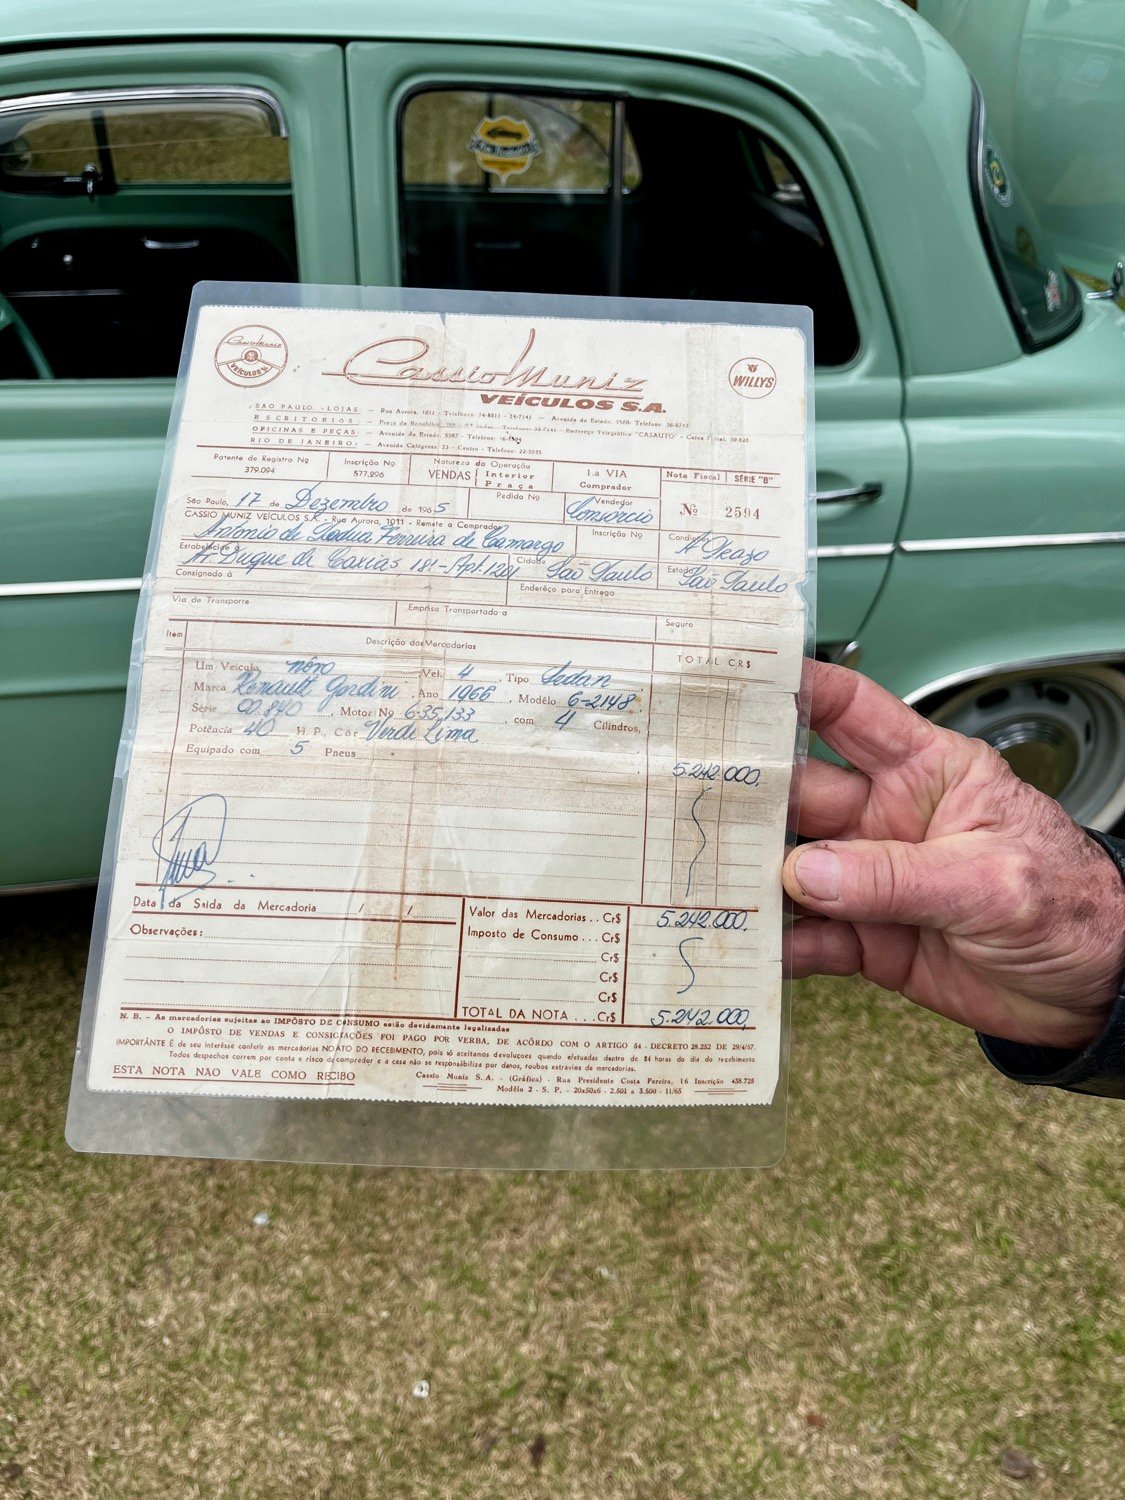 CassioMuniz
VEÍCULOS S.A.
CassioMuniz
VEÍCULOS S/A
WILLYS
SÃO PAULO - LOJAS: — Rua Aurora, 1011 - Telefones: 34-8811 - 36-7141 — Avenida do Estado, 5588- Telefone
ESCRITÓRIOS: — Praça da República, Telefone: - Enderêço Telegráfico "CASAUTO" - Caixa
OFICINAS E PEÇAS: — Avenida do Estado, 5587 - Telefone:
RIO DE JANEIRO: — Avenida Calógeras, 23 - Centro - Telefone: 22-5035
Patente de Registro Nº 379.094
Inscrição Nº 577.296
Natureza da Operação
VENDAS Interior Praça
1.a VIA
Comprador
Nota Fiscal SÉRIE "B"
Nº 2594
São Paulo, 17 de Dezembro de 1965
Pedido Nº
Vendedor Consorcio
CASSIO MUNIZ VEÍCULOS S.A. - Rua Aurora, 1011 - Remete a Comprador
Antonio de Padua Ferreira de Camargo
Inscrição Nº
Condições A Prazo
Estabelecido à Av. Duque de Caxias, 181 - Apt. 1201
Cidade São Paulo
Estado São Paulo
Consignado à
Enderêço para Entrega
Via de Transporte
Emprêsa Transportadora
Seguro
Item
Descrição das Mercadorias
TOTAL CR$
Um Veículo nôvo, Vel. 4, Tipo Sedan
Marca Renault Gordini, Ano 1966, Modêlo 6-2148
Série, Motor Nº 635,433, com 4 Cilindros,
Potência 40 H.P., Côr Verde Lima
Equipado com 5 Pneus
5.242.000,
Data da Saída da Mercadoria / /
Observações:
Valor das Mercadorias . . Cr$ 5.242.000,
Imposto de Consumo . . . Cr$
Cr$
Cr$
Cr$
TOTAL DA NOTA . . . Cr$ 5.242.000,
N. B. - As mercadorias sujeitas ao IMPÔSTO DE CONSUMO estão devidamente legalizadas
O IMPÔSTO DE VENDAS E CONSIGNAÇÕES FOI PAGO POR VERBA, DE ACÔRDO COM O ARTIGO 54 - DECRETO 28.252 DE 29/4/57.
IMPORTANTE É de seu interêsse conferir as mercadorias NO ATO DO RECEBIMENTO, pois só aceitamos devoluções quando efetuadas dentro de 24 horas do dia do recebimento
Todos despachos correm por conta e risco do comprador e a casa não se responsabiliza por danos, roubos extravios de mercadorias.
ESTA NOTA NÃO VALE COMO RECIBO
Cassio Muniz S.A. - (Gráfica) - Rua Presidente Costa Pereira, 16 Inscrição 438.725
Modêlo 2 - S. P. - 20x50x6 - 2.501 a 3.500 - 11/65